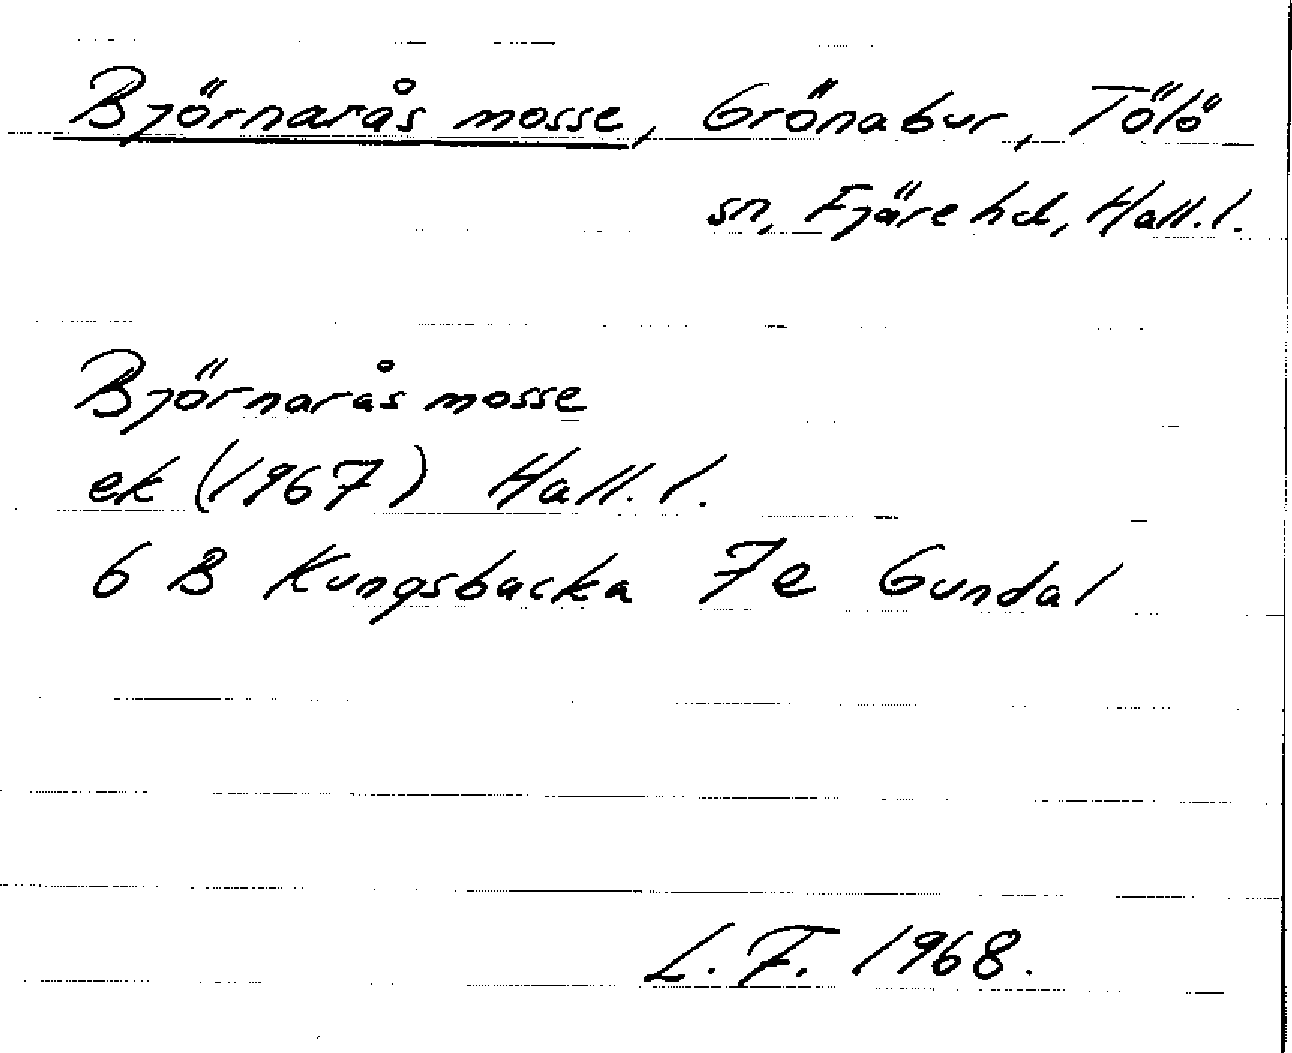 Björnarås mosse, Grönabur, Tölö
sn, Fjäre hd, Hall. l.
Björnarås mosse
ek (1967) Hall. l.
6 B Kungsbacka 7e Gundal
L. F. 1968.